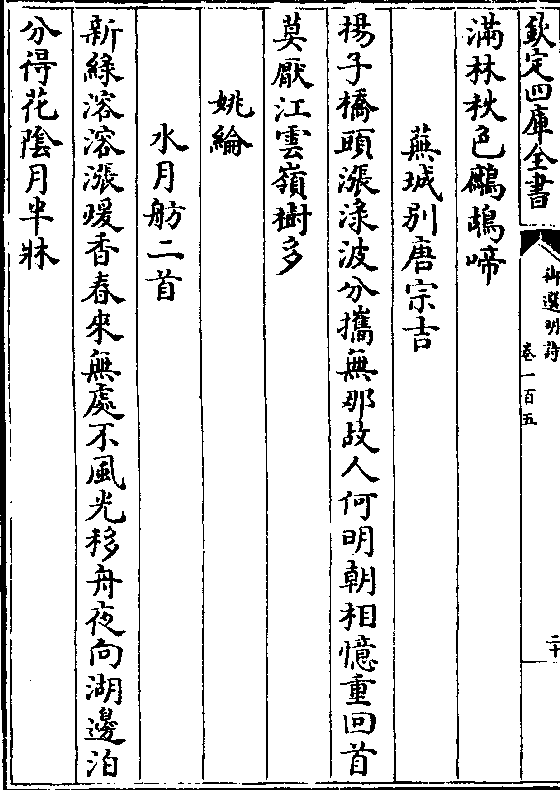 欽定四庫全書
御選明詩
卷一百五
二十
滿林秋色鷓鴣啼
蕪城别唐宗吉
揚子橋頭漲淥波分攜無那故人何明朝相憶重回首
莫厭江雲嶺樹多
姚綸
水月舫二首
新綠溶溶漲暖香春來無處不風光移舟夜向湖邊泊
分得花陰月半牀